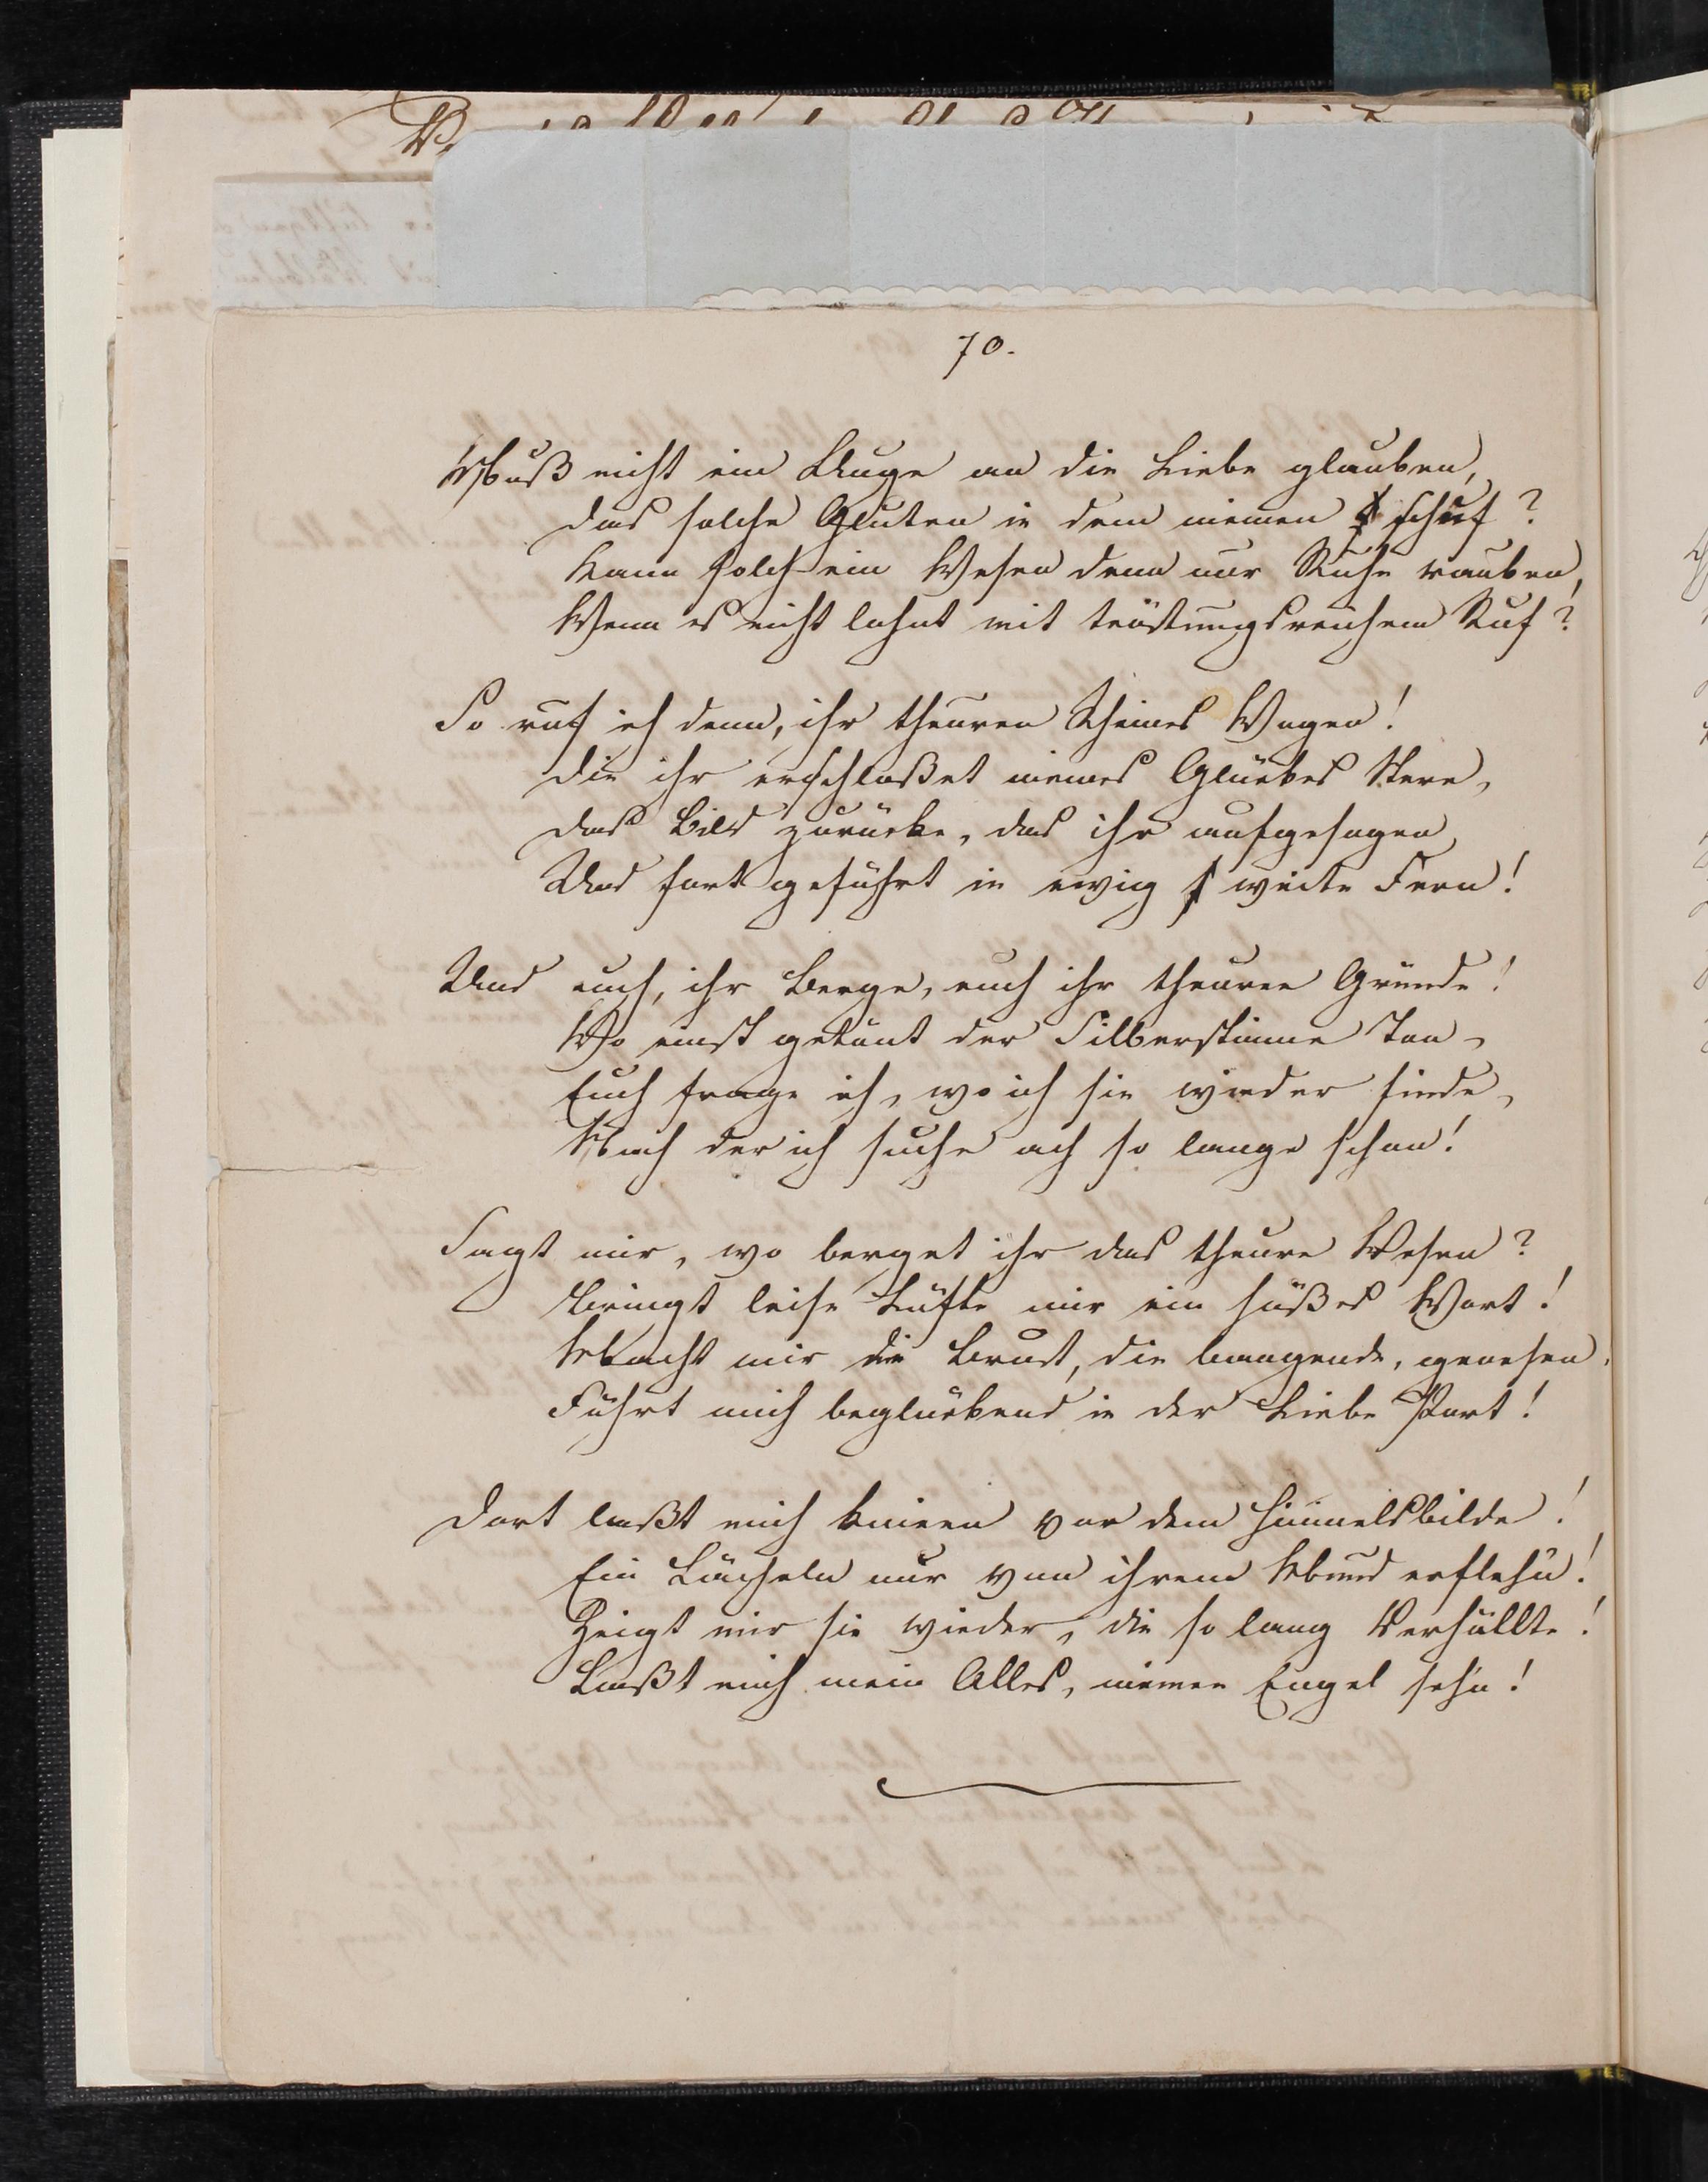 70.
Muß nicht ein Auge an die Liebe glauben,
Das solche Gluten in dem meinen schuf?
Kann solch ein Wesen denn nur Ruhe rauben,
Wenn es nicht lohnt mit tröstungsreichem Ruf?
So ruf ich denn, ihr theuren Rheines Wogen!
Die ihr erschloßet meines Glückes Stern,
Das Bild zurücke, das ihr aufgesogen
Und fortgeführt in ewig weite Fern!
Und euch, ihr Berge, euch ihr theuren Gründe!
Wo einst getönt der Silberstimme Ton,
Euch frage ich, wo ich sie wieder finde,
Nach der ich suche ach so lange schon!
Sagt mir, wo berget ihr das theure Wesen?
Bringt leise Lüfte mir ein süßes Wort!
Macht mir die Brust, die bangende, genesen,
Führt mich beglückend in der Liebe Port!
Dort laßt mich knieen vor dem Himmelsbilde!
Ein Lächeln nur von ihrem Mund erflehn!
Zeigt mir sie wieder, die so lang Verhüllte!
Laßt mich mein Alles, meinen Engel sehn!